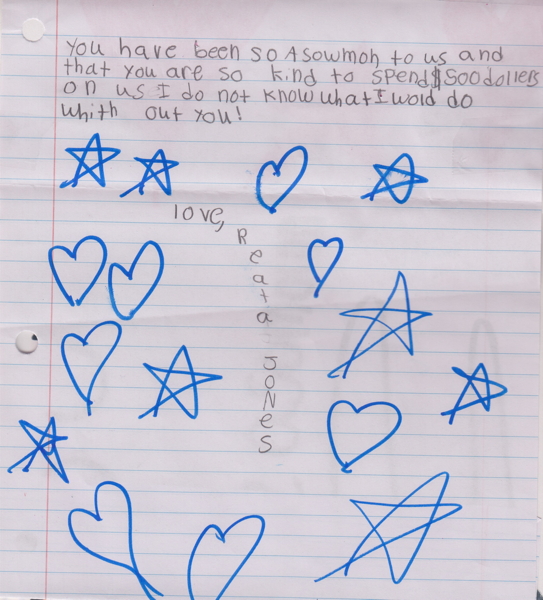 You have been so Asowmoh to us and
that you are so kind to spend $500 dollers
on us I do not know what I wold do
whith out you!
love,
Reata
JONES